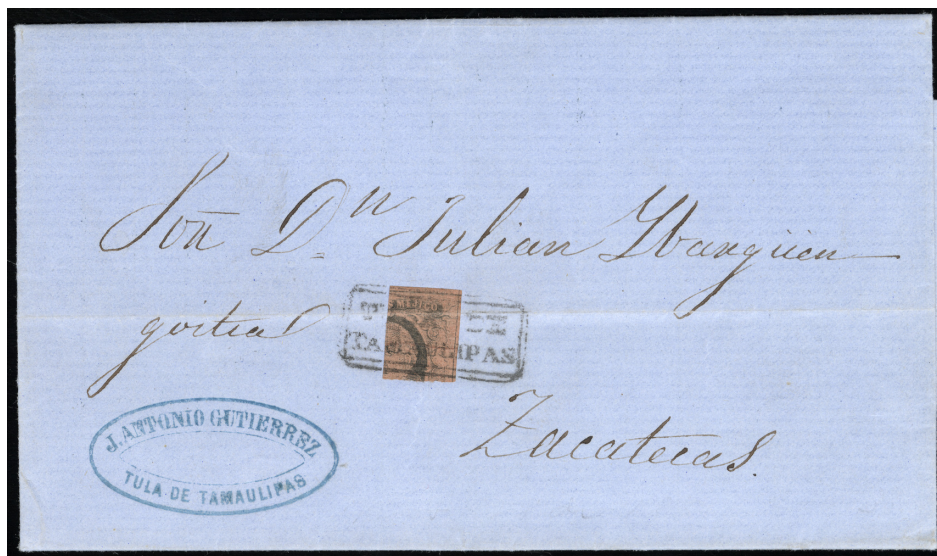 Señ Dn Julian Ybargüen
goitia
TULA DE
TAMAULIPAS
Zacatecas.
J. ANTONIO GUTIERREZ
TULA DE TAMAULIPAS